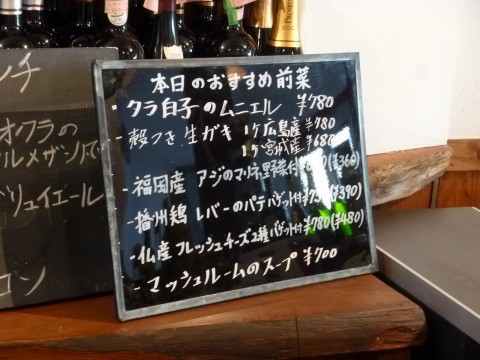 ンチ
オクラの
ルメザンチ
リュイエール
コン
本日のおすすめ前菜
・タラ白子のムニエル ¥780
- 殻つき生ガキ 1ヶ広島産 ¥780
1ヶ宮城産 ¥680
- 福岡産 アジのマリネ 野菜付 (¥360)
- 播州鶏 レバーのパテ バゲット付 ¥730(¥390)
- 仏産 フレッシュチーズ2種 バゲット付 ¥780(¥480)
- マッシュルームのスープ ¥700